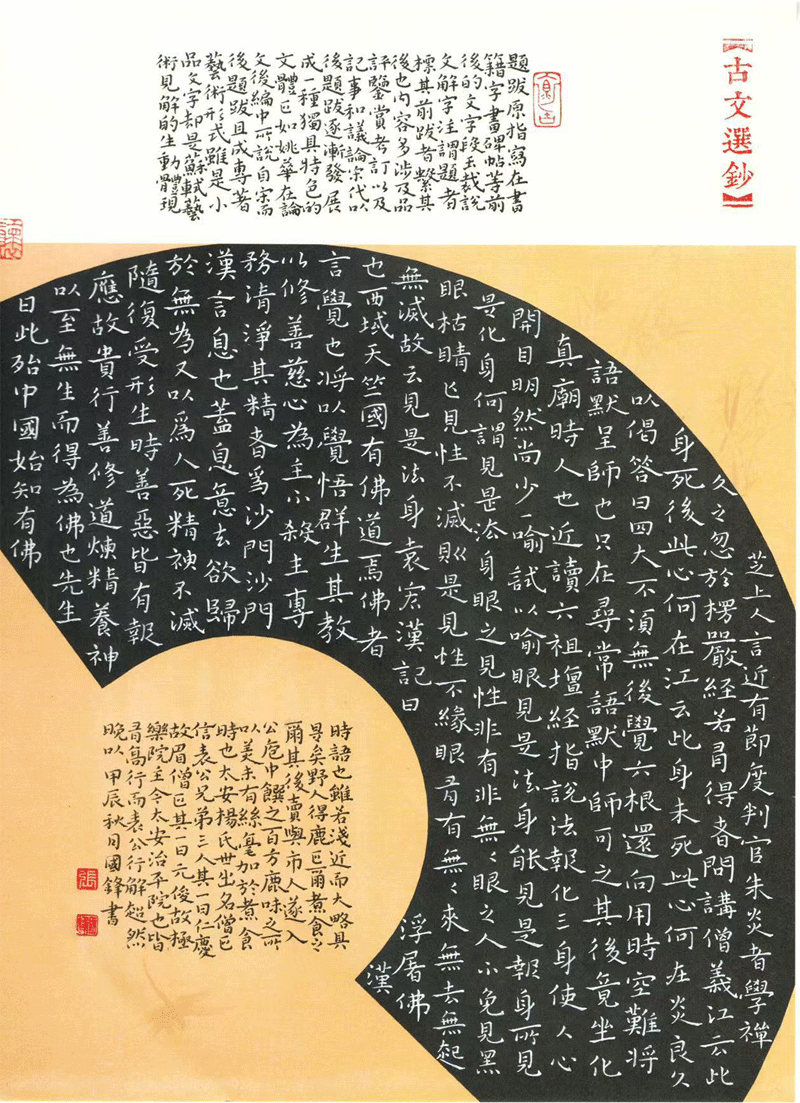 【古文選鈔】
題跋原指寫在書
籍字畫碑帖等前
後的文字段玉裁説
文解字注謂題者
標其前跋者繫其
後也内容多涉及品
評鑒賞考訂以及
記事和議論宋代以
後題跋逐漸發展
成一種獨具特色的
文體已如姚華在論
文後編中所説自宋而
後題跋且成專著
藝術形式雖是小
品文字却是蘇軾藝
術見解的生動體現
芝上人言近有節度判官朱炎者學禅
久之忽於楞嚴経若有得者問講僧義江云此
身死後此心何在江云此身未死此心何在炎良久
以偈答曰四大不須無後覺六根還向用時空難將
語默呈師也只在尋常語默中師可之其後竟坐化
真廟時人也近讀六祖壇経指説法報化三身使人心
開目明然尚少一喻試以喻眼見是法身能見是報身所見
是化身何謂見是法身眼之見性非有非無無眼之人不免見黑
眼枯睛亡見性不滅則是見性不緣眼有有無無來無去無起
無滅故云見是法身袁宏漢記曰
浮屠佛
也西域天竺國有佛道焉佛者
漢
言覺也将以覺悟群生其教
以修善慈心為主不殺主專
務清淨其精者爲沙門沙門
漢言息也蓋息意去欲歸
於無為又以爲人死精神不滅
隨復受形生時善惡皆有報
應故貴行善修道煉精養神
以至無生而得為佛也先生
曰此殆中國始知有佛
時語也雖若淺近而大略具
是矣野人得鹿正爾煮食之
爾其後賣與市人遂入
公庖中饌之百方鹿味之所
以美未有絲毫加於煮食
時也太安楊氏世出名僧正
信表公兄弟三人其一曰仁慶
故眉僧正其一曰元俊故極
樂院主今太安治平院也皆
有高行而表公行解超然
晚以 甲辰秋月國鋒書